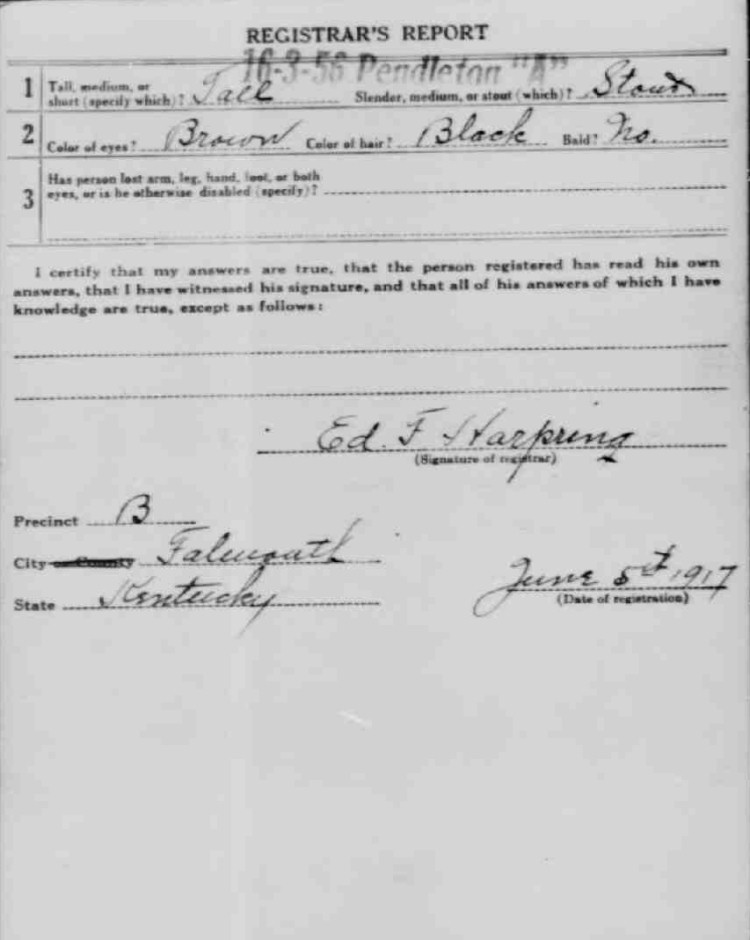 REGISTRAR'S REPORT
16-3-56 Pendleton "A"
1 Tall, medium, or
short (specify which)? Tall Slender, medium, or stout (which)? Stout
2 Color of eyes? Brown Color of hair? Black Bald? No.
3 Has person lost arm, leg, hand, foot, or both
eyes, or is he otherwise disabled (specify)?
I certify that my answers are true, that the person registered has read his own
answers, that I have witnessed his signature, and that all of his answers of which I have
knowledge are true, except as follows:
Ed. F Harpring
(Signature of registrar)
Precinct B
City or County Falmouth
State Kentucky
June 5th 1917
(Date of registration)